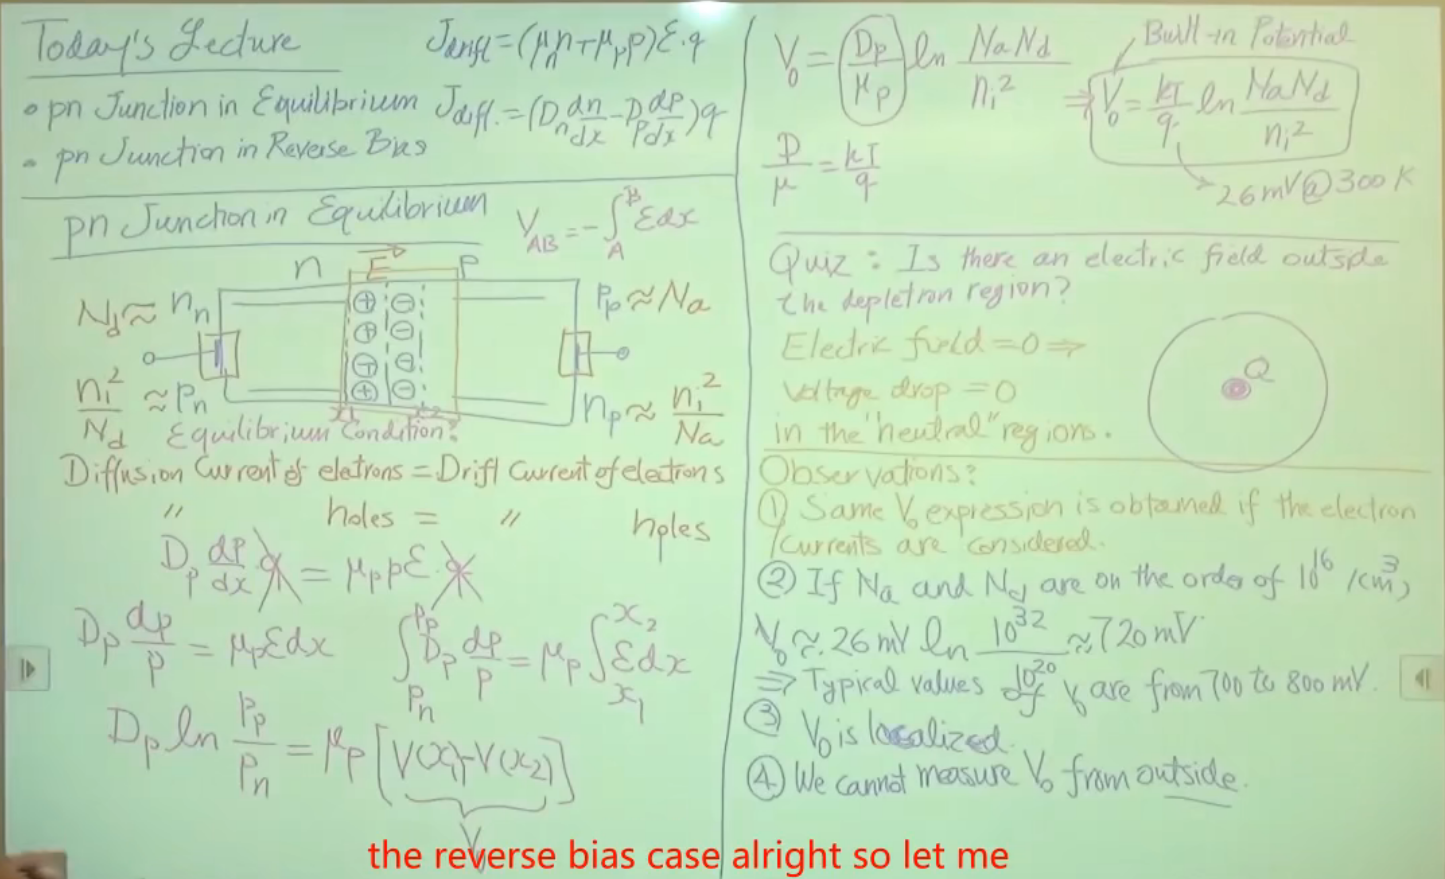 Today's Lecture
J_drift = (μ_n n + μ_p p) E · q
• pn Junction in Equilibrium
J_diff. = (D_n dn/dx - D_p dp/dx) q
• pn Junction in Reverse Bias
pn Junction in Equilibrium
V_AB = - ∫_A^B E dx
n E p
N_d ≈ n_n
P_p ≈ Na
n_i^2/N_d ≈ P_n
n_p ≈ n_i^2/Na
x_1 x_2
Equilibrium Condition:
Diffusion Current of eletrons = Drift Current of electrons
" holes = " holes
D_p dp/dx q = μ_p p E q
D_p dp/p = μ_p E dx
∫_{P_n}^{P_p} D_p dp/p = μ_p ∫_{x_1}^{x_2} E dx
D_p ln P_p/P_n = μ_p [V(x_1) - V(x_2)]
V_0 = (D_p/μ_p) ln NaNd/n_i^2
Built-in Potential
⇒ V_0 = kT/q ln NaNd/n_i^2
D/μ = kT/q
26 mV @ 300 K
Quiz : Is there an electric field outside
the depletion region?
Electric field = 0 ⇒
Voltage drop = 0
in the "neutral" regions.
Q
Observations:
① Same V_0 expression is obtained if the electron
currents are considered.
② If Na and Nd are on the order of 10^16 /cm^3,
V_0 ≈ 26 mV ln 10^32/10^20 ≈ 720 mV
⇒ Typical values of V_0 are from 700 to 800 mV.
③ V_0 is localized.
④ We cannot measure V_0 from outside.
the reverse bias case alright so let me